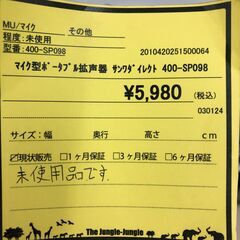 MU/マイク その他
程度:未使用
型番:400-SP098 2010420251500064
マイク型ポータブル拡声器 サンワダイレクト 400-SP098
¥5,980 (税込)
030124
サイズ:幅 奥行 高さ cm
☑現状販売 □1ヶ月保証 □3ヶ月保証 □6ヶ月保証
未使用品です.
The Jungle-Jungle